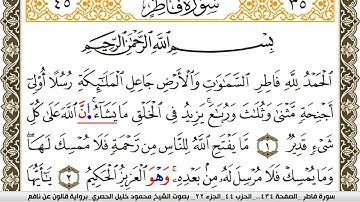 ٤٥ سُورَةُ فَاطِرٍ ٣٥
بِسْمِ اللَّهِ الرَّحْمَٰنِ الرَّحِيمِ
اَلْحَمْدُ لِلَّهِ فَاطِرِ السَّمَٰوَٰتِ وَالْأَرْضِ جَاعِلِ الْمَلَٰٓئِكَةِ رُسُلًا أُوْلِےٓ
أَجْنِحَةٖ مَّثْنَىٰ وَثُلَٰثَ وَرُبَٰعَۖ يَزِيدُ فِے الْخَلْقِ مَا يَشَآءُۖ انَّ اَللَّهَ عَلَىٰ كُلِّ
شَےْءٖ قَدِيرٌۖ ١ مَّا يَفْتَحِ اِللَّهُ لِلنَّاسِ مِن رَّحْمَةٖ فَلَا مُمْسِكَ لَهَاۖ
وَمَا يُمْسِكْ فَلَا مُرْسِلَ لَهُۥ مِنۢ بَعْدِهِۦۖ وَهْوَ اَلْعَزِيزُ اُلْحَكِيمُۖ ٢ يَٰٓأَيُّهَا
سورة فاطر الصفحة ٤٣٤.. الحزب ٤٤ .الجزء ٢٢. بصوت الشيخ محمود خليل الحصري برواية قالون عن نافع